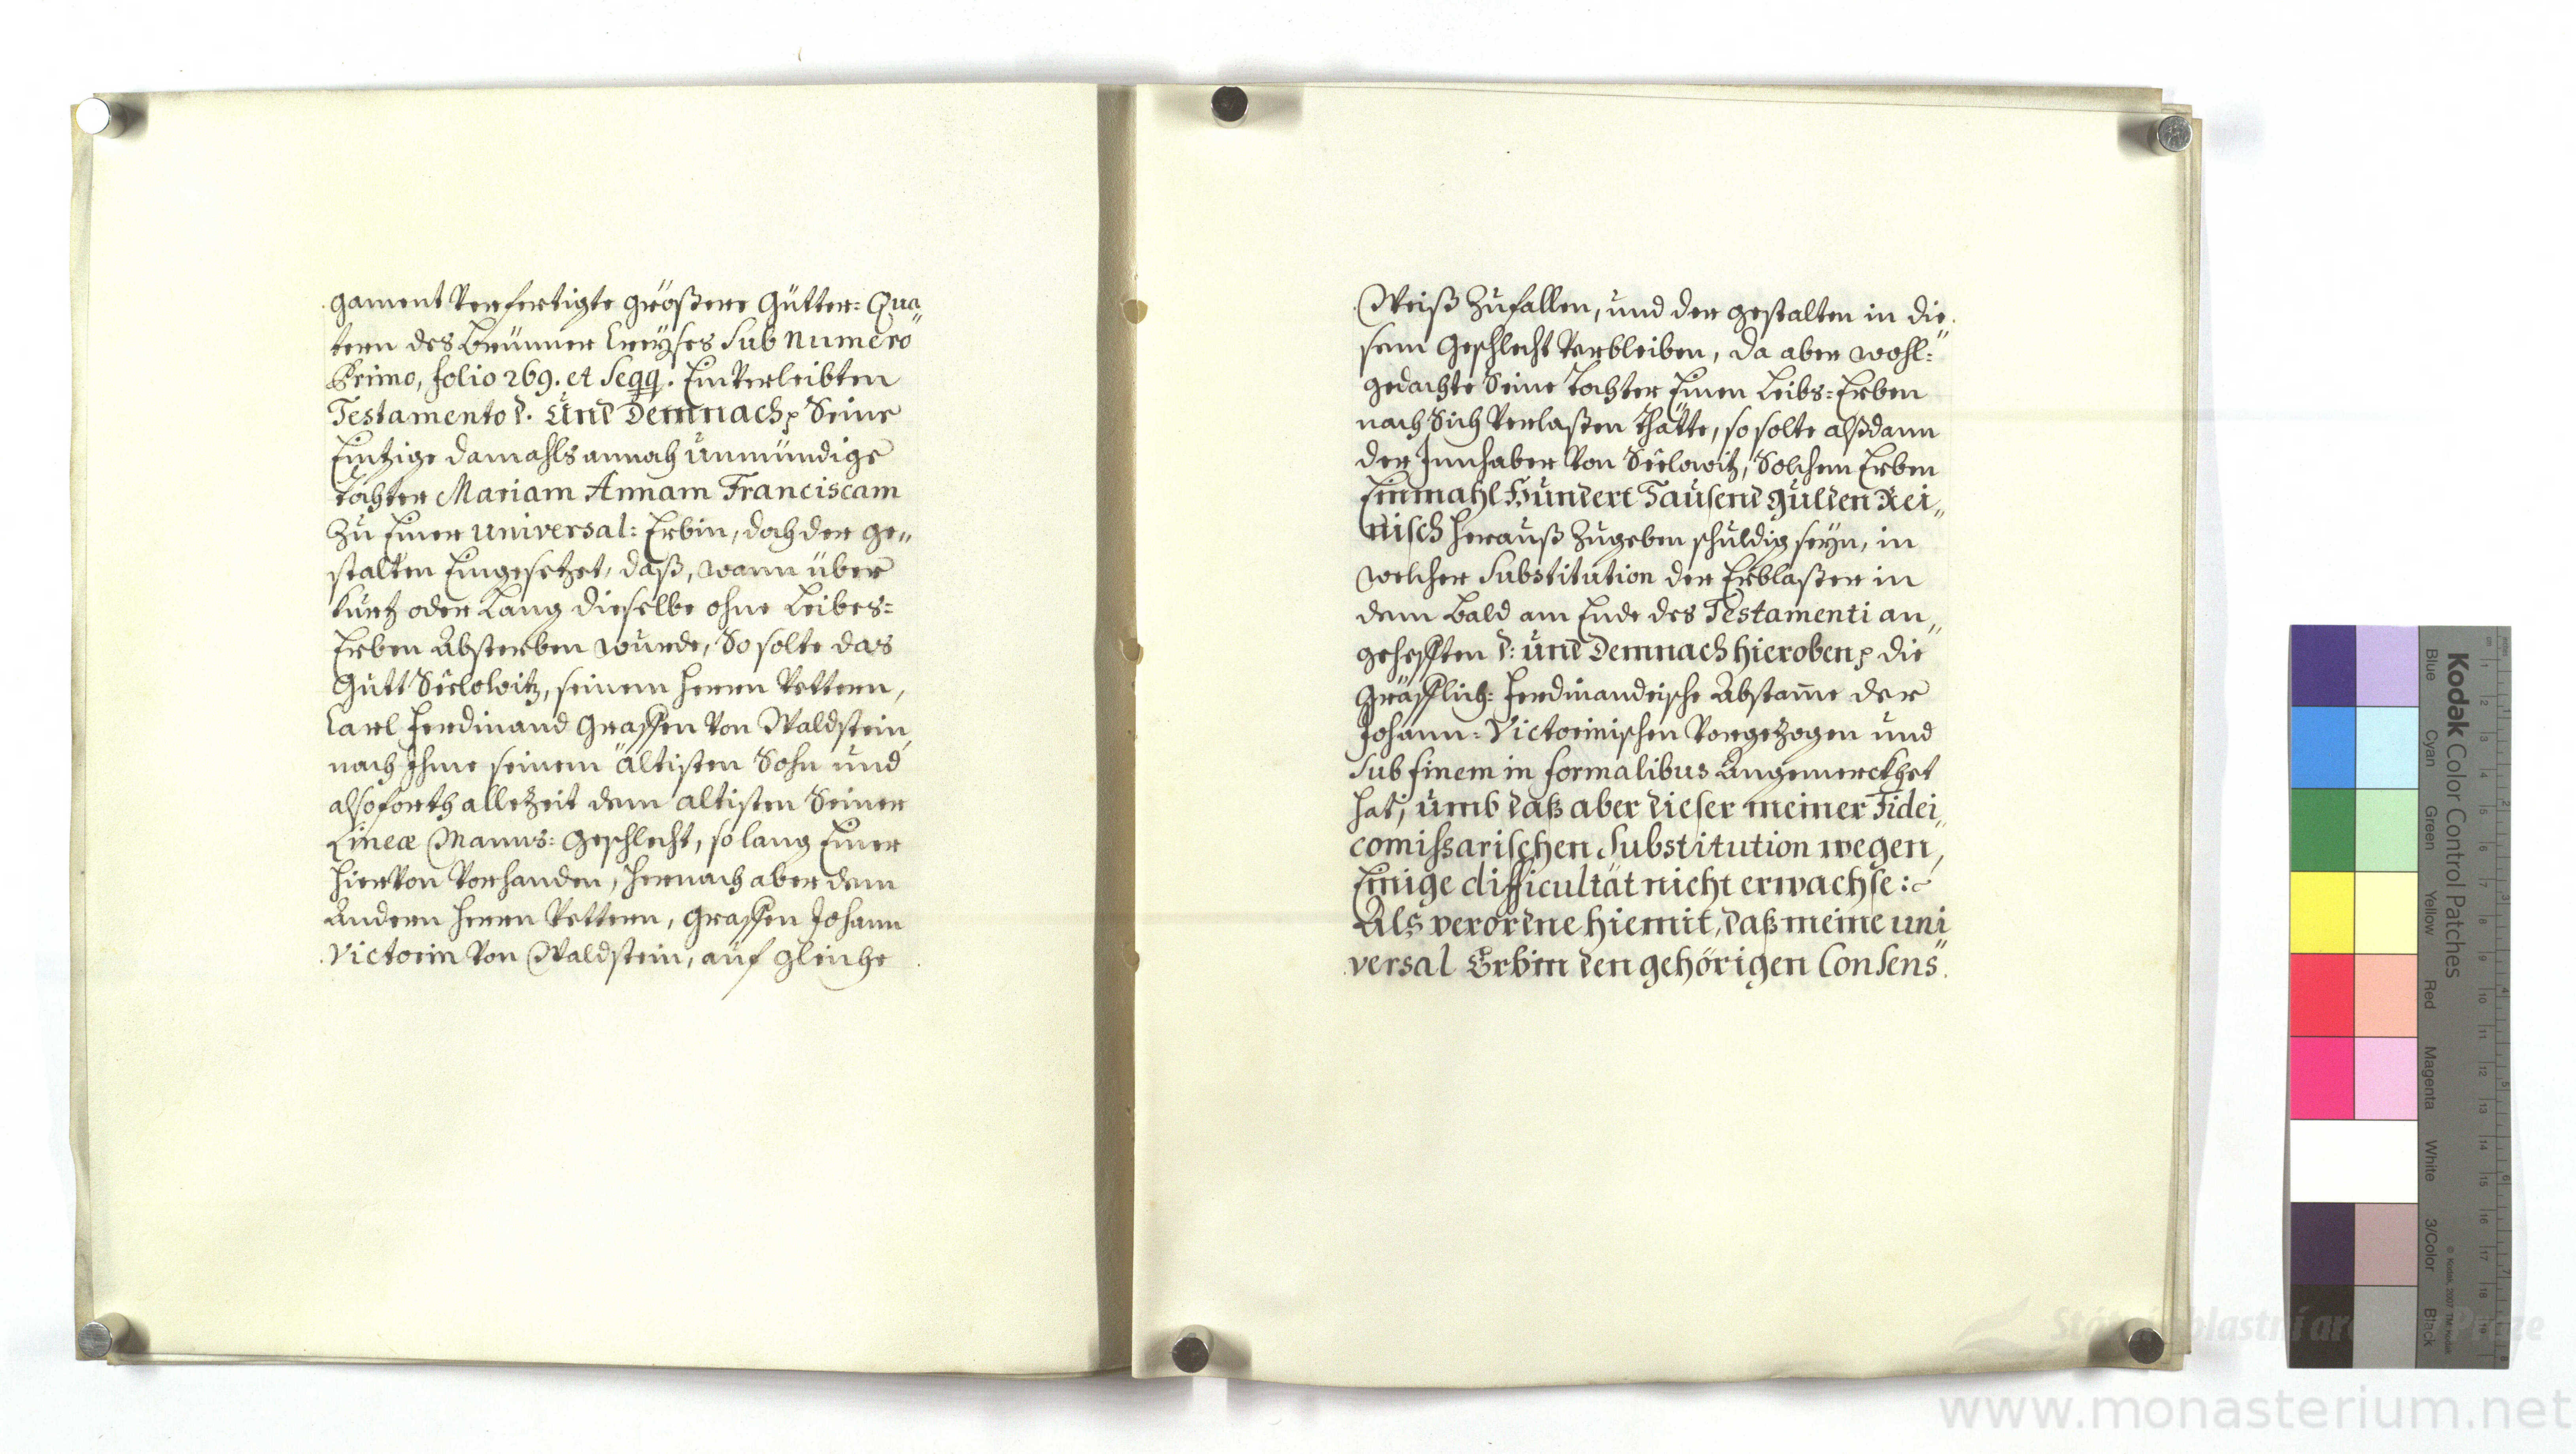 gament verfertigte größere Gütter= Qua„
tern des Brünner Creÿses sub numero
Primo, folio 269. et seqq. Einverleibten
Testamento d. Und Demnach p Seine
Eintzige damahls annoch unmündige
Tochter Mariam Annam Franciscam
zu Einer universal: Erbin, doch der ge„
stalten Eingesetzet, daß, wann über
kurtz oder Lang dieselbe ohne Leibes=
Erben Absterben wurde, So solte das
Gutt Seelowitz, seinem Herrn Vettern,
Carl Ferdinand Graffen von Waldstein,
nach Ihme seinem ältisten Sohn und
alsoforth allezeit dem altisten Seiner
Lineæ Manns= Geschlecht, so lang Einer
hiervon vorhanden, hernach aber dem
Andern Herrn Vettern, Graffen Johann
Victorin von Waldstein, auf gleiche
Weiß zufallen, und der gestalten in die„
sem Geschlecht verbleiben, da aber wohl=
gedachte Seine Tochter Einen Leibs=Erben
nach Sich verlaßen thätte, so solte alßdann
der Innhaber von Seelowitz, Solchem Erben
Einmahl Hundert Tausend gulden Rei„
nisch herauß zugeben schuldig seyn, in
welcher Substitution der Erblaßer in
dem bald am Ende des Testamenti an„
gehefften d: und Demnach hieroben p die
Gräfflich= Ferdinandeische Abstam̅e der
Johann= Victorinischen vorgezogen und
sub finem in formalibus Angemerckhet
hat, umb daß aber dieser meiner Fidei„
comißarischen Substitution wegen,
Einige difficultät nicht erwachse:
Als verordne hiemit, daß meine uni
versal Erbin den gehörigen Consens„
Kodak Color Control Patches
Blue Cyan Green Yellow Red Magenta White 3/Color Black
© Kodak, 2007 TM: Kodak
www.monasterium.net